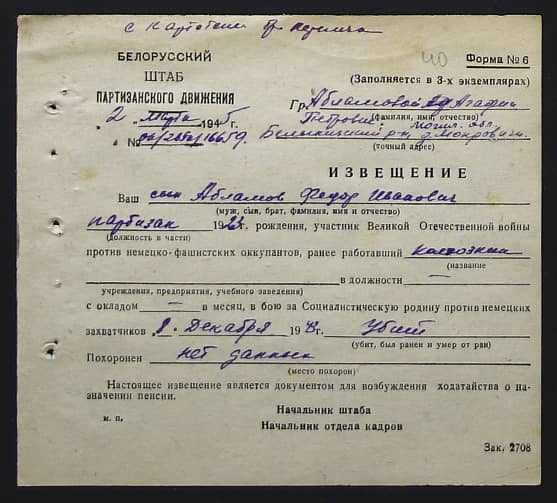 с картотекой
40
БЕЛОРУССКИЙ
ШТАБ
ПАРТИЗАНСКОГО ДВИЖЕНИЯ
2 марта 1945 г.
№
Форма № 6
(Заполняется в 3-х экземплярах)
Гр. Абламовой Агафии
(фамилия, имя, отчество)
Петровне Могил. обл.
Белыничский р-н, д. Мокровичи.
(точный адрес)
ИЗВЕЩЕНИЕ
Ваш сын Абламов Федор Иванович
(муж, сын, брат, фамилия, имя и отчество)
партизан рождения, участник Великой Отечественной войны
(должность в части)
против немецко-фашистских оккупантов, ранее работавший колхозник
(название
— в должности —
учреждения, предприятия, учебного заведения)
с окладом — в месяц, в бою за Социалистическую родину против немецких
захватчиков Декабря убит
(убит, был ранен и умер от ран)
Похоронен нет данных
(место похорон)
Настоящее извещение является документом для возбуждения ходатайства о на-
значении пенсии.
Начальник штаба
м. п.
Начальник отдела кадров
Зак. 2708